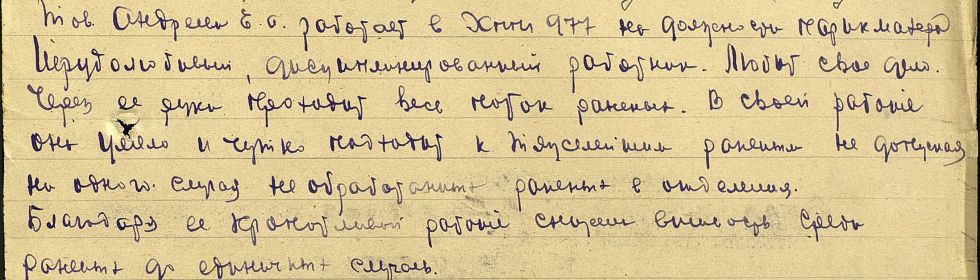 Тов. Андреева Е. О. работает в ХППГ 977 на должности парикмахера
Трудолюбивый, дисциплинированный работник. Любит свое дело.
Через ее руки проходит весь поток раненых. В своей работе
она умело и чутко подходит к тяжелейшим раненым не допуская
ни одного случая необработанных раненых в отделения.
Благодаря ее кропотливой работе снижен вшивость среди
раненых до единичных случаев.